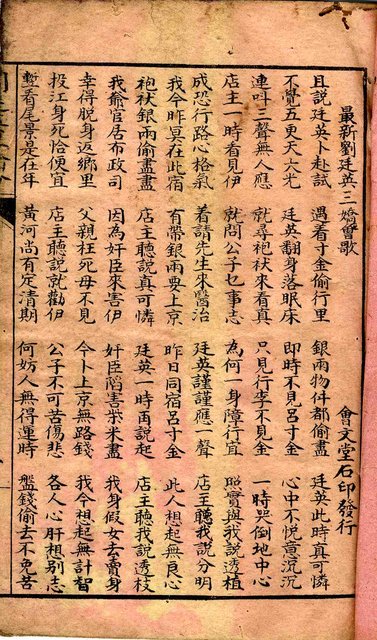 最新劉廷英三嬌會歌 會文堂石印發行
且說廷英卜赴試 遇着寸金偷行里 銀雨物件都偷盡 廷英此時真可憐
不覺五更天大光 廷英翻身落眠床 即時不見呂寸金 心中不悅意沉沉
連呌三聲無人應 就尋袍袱來看真 只見行李不見金 一時哭倒地中心
店主一時看見伊 就問公子乜事志 為何一身障行宜 照實與我說透植
成恐行路心格氣 着請先生來醫治 廷英謹謹應一聲 店主聽我說分明
我今昨冥在此宿 有帶銀兩要上京 昨日同宿呂寸金 此人想起無良心
袍袱銀兩偷盡盡 店主聽說真可憐 廷英一時再說起 店主聽我說透枝
我爺官居布政司 因為奸臣來害伊 奸臣陷害柴米盡 我身假女去賣身
幸得脫身返鄉里 父親枉死母不見 今卜上京無路錢 我今想起無計智
投江身死恰便宜 店主聽說就勸伊 公子不可苦傷悲 各人心肝想別志
暫看尾景是在年 黃河尚有定清期 何妨人無得運時 盤錢偷去不免苦